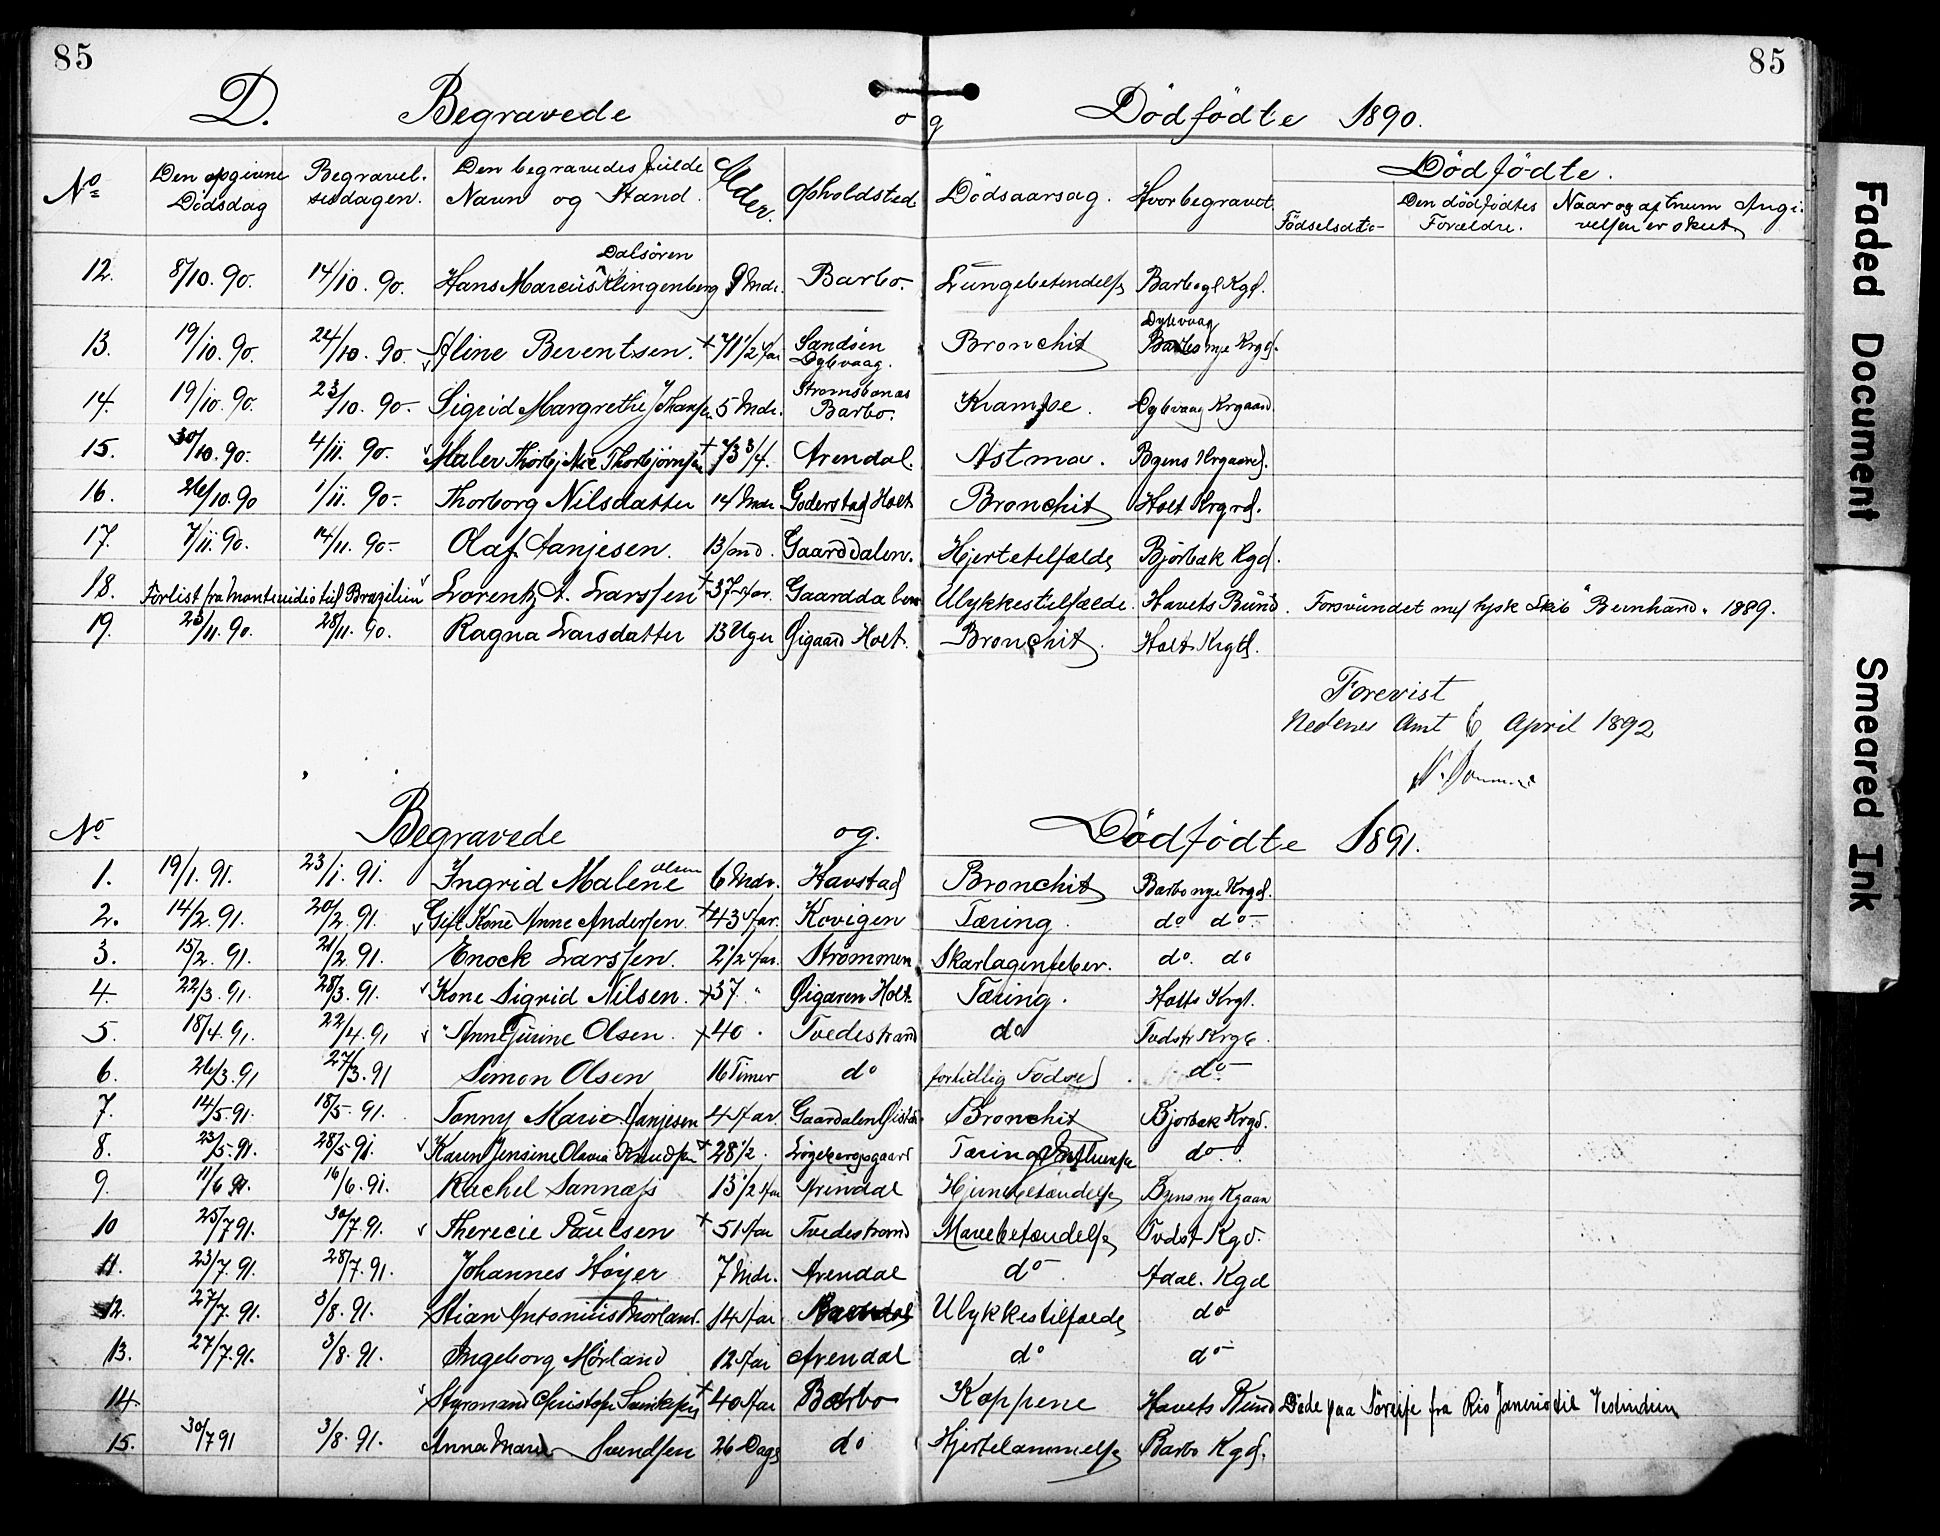 85 85
D. Begravede og Dödfödte 1890.
No Den opgivne Dödsdag Begravelsesdagen. Den begravedes fulde Navn og Stand. Alder. Opholdsted Dödsaarsag. Hvor begravet Dödfödte.
Födselsdato Den dödfödtes Forældre. Naar og af hvem Angivelsen er skeet
12. 8/10. 90. 14/10. 90. Hans Marcus Dalsören Klingenberg 9 Mdr. Barbo. Lungebetendelse Barbo gl Kgd.
13. 19/10. 90. 24/10. 90. Aline Berentsen. 71 1/2 Aar Sandöen Dybvaag. Bronchit Dybvaag Krgd.
14. 19/10. 90. 23/10. 90. Sigrid Margrethe Johansen 5 Mdr. Strømsbonæs Barbo. Krampe. Dybvaag Krgaard.
15. 30/10. 90. 4/11. 90. Maler Thorbj Thorbjørnsen 73 3/4. Arendal. Astma. Byens Krgaard.
16. 26/10. 90 1/11. 90. Thorborg Nilsdatter 14 Mdr Goderstad Holt Bronchit Holt Krgrd.
17. 7/11. 90. 14/11. 90. Olaf Tanjesen. 13 Gaarddalen. Hjertetilfælde Bjorbæk Kgd.
18. Forlist fra Montividio til Brazilien Lorentz A. Larssen 37 Aar. Gaarddalen Ulykkestilfælde. Havets Bund. Forsvundet med tysk Skib "Bernhard" 1889.
19. 23/11. 90. 28/11. 90. Ragna Larsdatter 13 Uger Øigaard Holt. Bronchit. Holt Krgd.
Forevist
Nedenes Amt 6 April 1892
No Begravede og. Dödfödte 1891.
1. 19/1. 91. 23/1. 91. Ingrid Malene Olsen 6 Mdr. Havstad Bronchit Barbo nye Krgd.
2. 14/2. 91. 20/2. 91. Gift Kone Anne Andersen 43 Aar. Kovigen Tæring. do do
3. 15/2. 91. 21/2. 91. Enock Larssen. 2 1/2 Aar. Strømmen Skarlagenfeber. do. do
4. 22/3. 91. 28/3. 91. Kone Sigrid Nilsen. 37 " Øigaren Holt. Tæring. Holts Krgd.
5. 18/4. 91 22/4. 91 " Anne Turine Olsen. 40. Tvedestrand do Tvdstr Krgd.
6. 26/3. 91 27/3. 91 Simon Olsen 16 Timer do fortidlig Födsel. do
7. 14/5. 91. 18/5. 91. Tonny Marie Tanjesen 4 Aar. Gaardalen Bronchit Bjorbæk Krgd.
8. 23/5. 91. 28/5. 91. Karen Jensine Olavia Knudsen 28 1/2. Longebergsgaard Tæring Influense do
9. 11/6 91. 16/6. 91. Rachel Sannæss 13 1/2 Aar Arendal Hjernebetændelse Byens ny Kgaar
10 25/7 91. 30/7. 91. Therecie Paulsen 51 Aar Tvedestrand Mavebetændelse Tvdst Kgd.
11. 23/7. 91. 28/7. 91. Johannes Höyer 7 Mdr. Arendal do Adal. Kgd
12. 27/7. 91. 3/8. 91. Stian Antonius Morland. 14 Aar Ulykkestilfælde do
13. 27/7. 91. 3/8. 91. Ingeborg Mørland 12 Aar Arendal do do
14. Styrmand Christofer 40 Aar Barbo Koppene Havets Bund Döde paa Söreise fra Rio Janerio til Vestindien
15. 30/7 91 3/8. 91. Anna Marie Svendsen 26 Dage do Hjertelammelse Barbo Kgd.
Faded Document
Smeared Ink